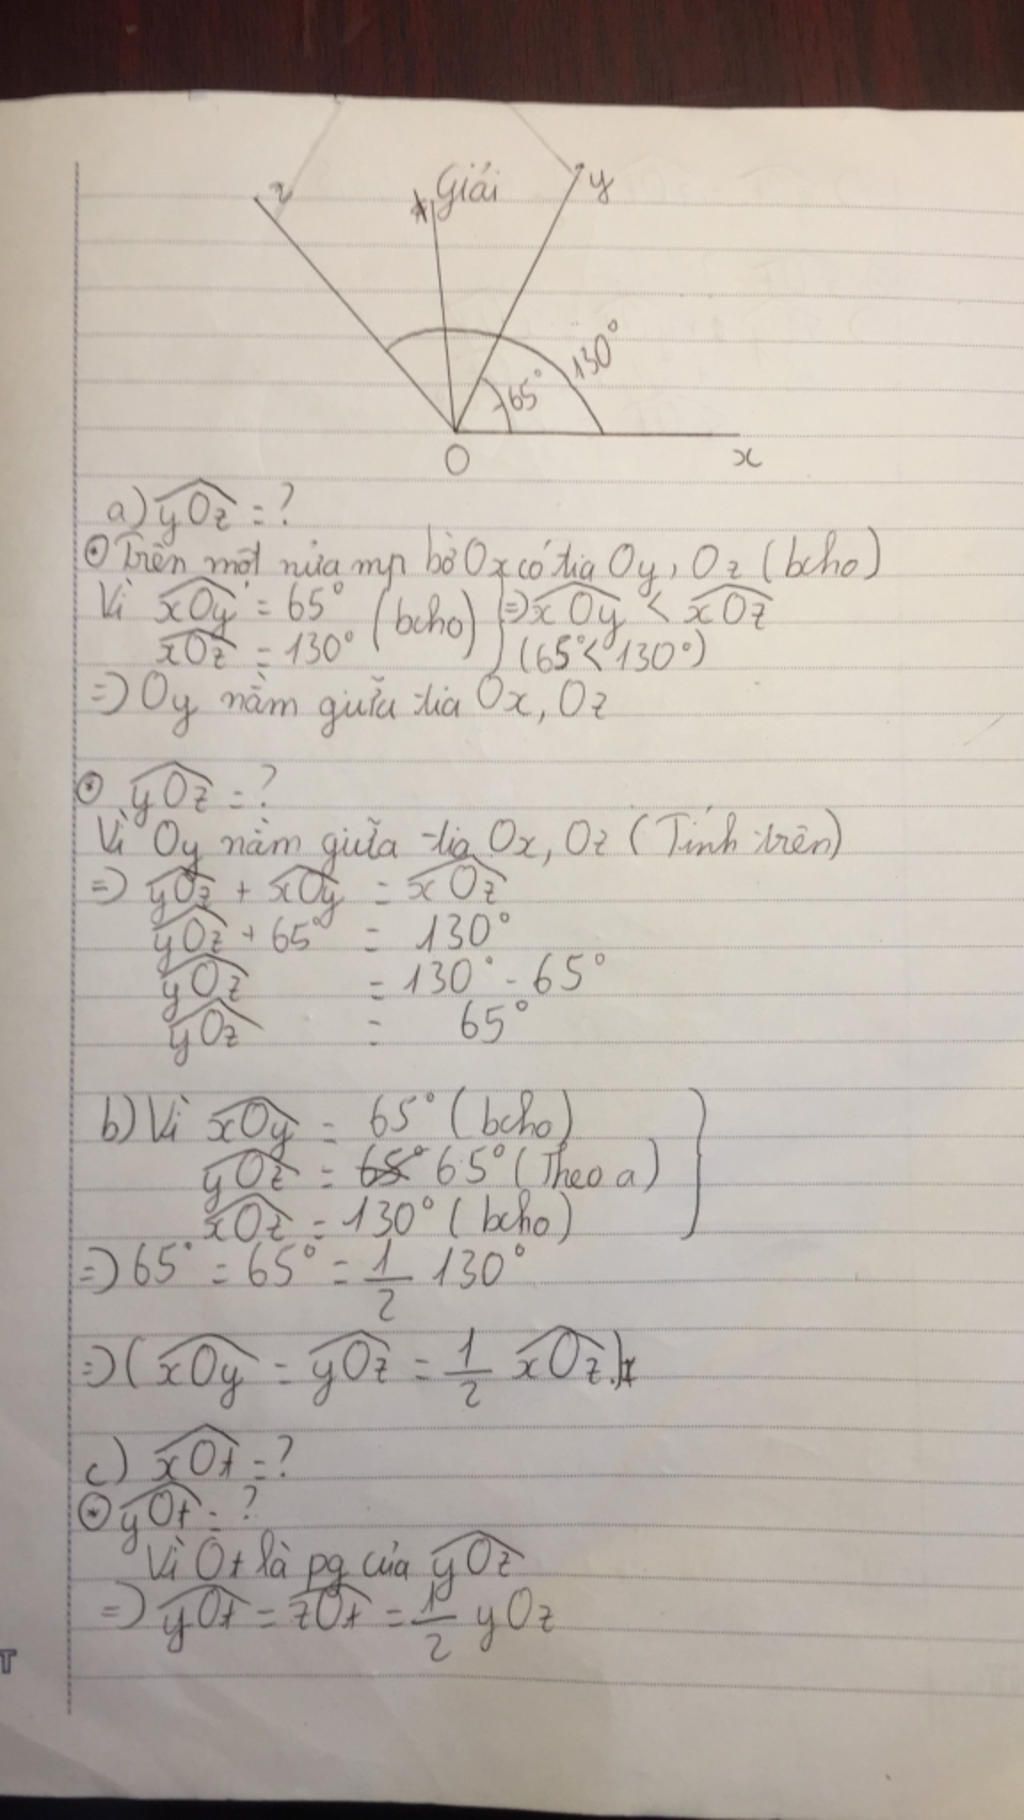 Giải
z
t
y
130°
65°
O
x
a) yOz = ?
⊙ Trên một nửa mp bờ Ox có tia Oy, Oz (bcho)
Vì xOy = 65° (bcho) } ⇒ xOy < xOz
xOz = 130° (65° < 130°)
⇒ Oy nằm giữa tia Ox, Oz
⊙ yOz = ?
Vì Oy nằm giữa tia Ox, Oz (Tính trên)
⇒ yOz + xOy = xOz
yOz + 65° = 130°
yOz = 130° - 65°
yOz = 65°
b) Vì xOy = 65° (bcho)
yOz = 65° 65° (Theo a)
xOz = 130° (bcho)
⇒ 65° = 65° = 1/2 130°
⇒ (xOy = yOz = 1/2 xOz)*
c) xOt = ?
⊙ yOt = ?
Vì Ot là pg của yOz
⇒ yOt = zOt = 1/2 yOz
T